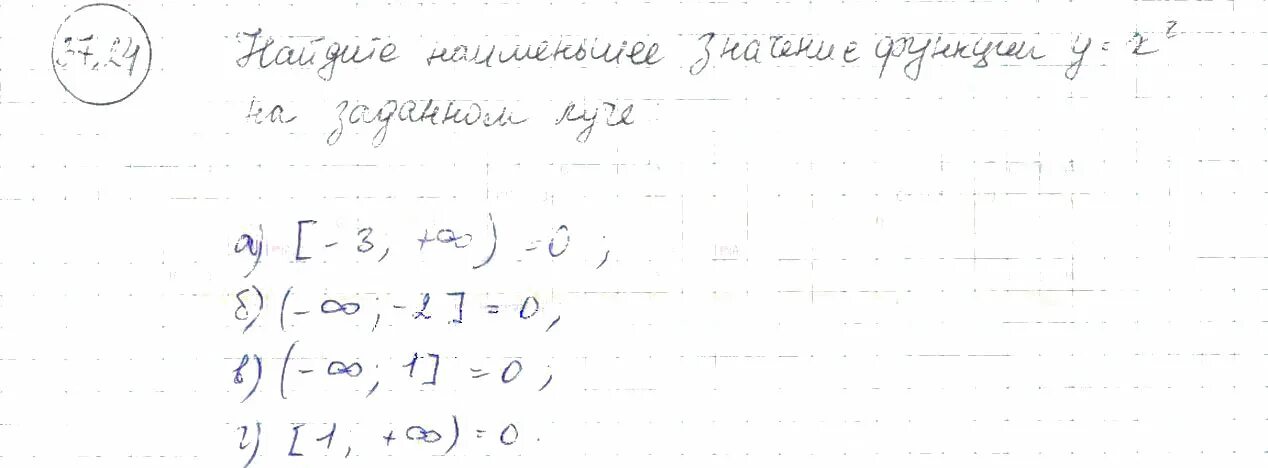 37.24 Найдите наименьшее значение функции y = x²
на заданном луче
а) [-3; +∞) = 0;
б) (-∞; -2] = 0;
в) (-∞; 1] = 0;
г) [1; +∞) = 0.